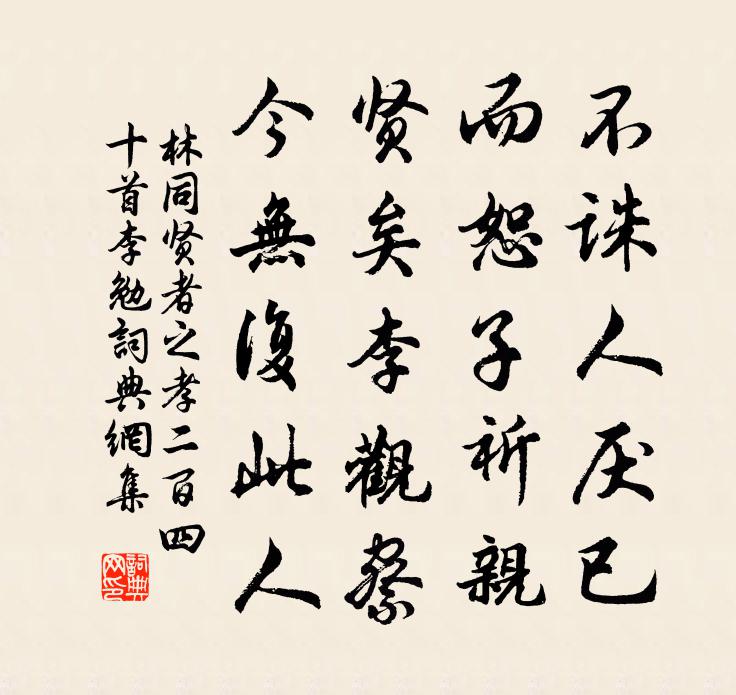 不诛人厌已
而恕子祈親
贤矣李觀察
今無復此人
林同贤者之孝二百四
十首李勉詞典網集
詞典网印